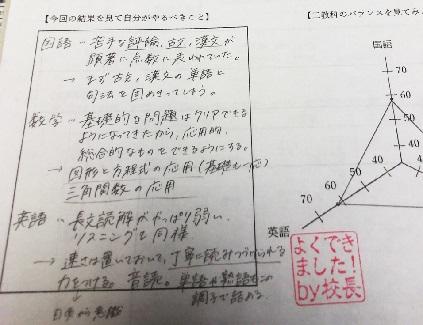 【今回の結果を見て自分がやるべきこと】
国語…苦手な評論、古文、漢文が
顕著に点数に表れていた。
→まず古文、漢文の単語と
句法を固めきってしまう。
数学…基礎的な問題はクリアできる
ようになってきたから、応用的、
総合的なものもできるようにする。
→図形と方程式の応用(基礎も一応)
三角関数の応用
英語…長文読解がやっぱり弱い。
リスニングも同様
→速さは置いておいて、丁寧に読みつづけられる
力をつける。音読。単語や熟語もこの
調子で詰める。
日頃から意識
【二教科のバランスを見てみ
国語
70
60
50
40
40
50
60
70
40
英語
よくでき
ました!
by校長